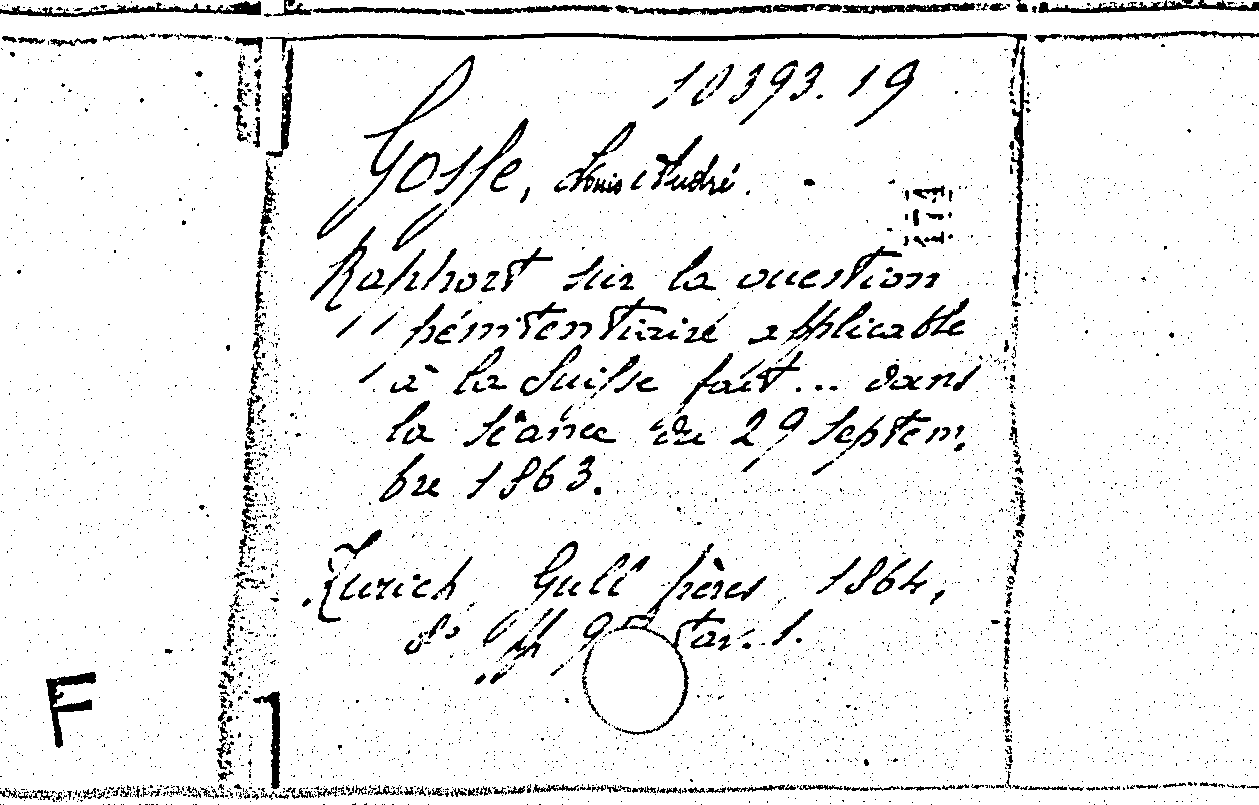 10393.19
Gosse, Louis André.
Rapport sur la question
pénitentiaire applicable
à la Suisse fait... dans
la séance du 29 septem,
bre 1863.
Zurich, Gull frères 1864,
8° pp. tav. 1.
F